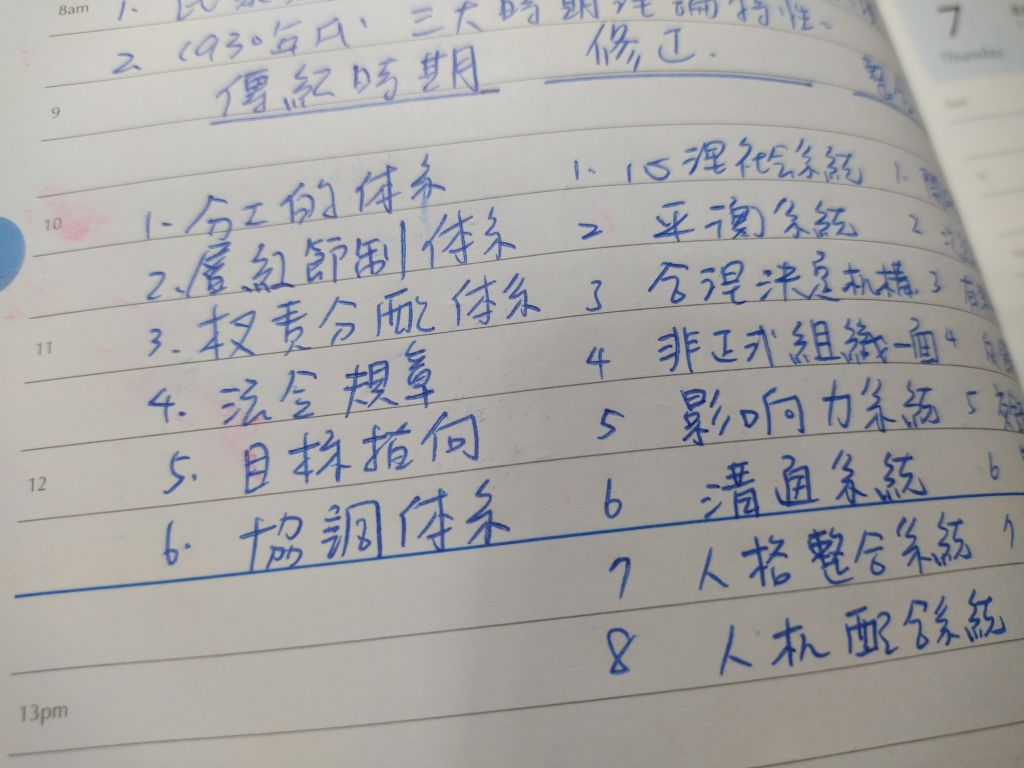 8am 1. 民
2. 1930年代 三大時期理論特性.
9 傳統時期 修正.
10 1. 分工的体系 1. 心理社会系統 1.
2. 層級節制体系 2 平衡系統 2
11 3. 权責分配体系 3 合理決定机構 3
4. 法令規章 4 非正式組織一面 4
12 5. 目标指向 5 影响力系統 5
6. 協調体系 6 溝通系統 6
7 人格整合系統 7
8 人机配合系統
13pm
7
Thursday